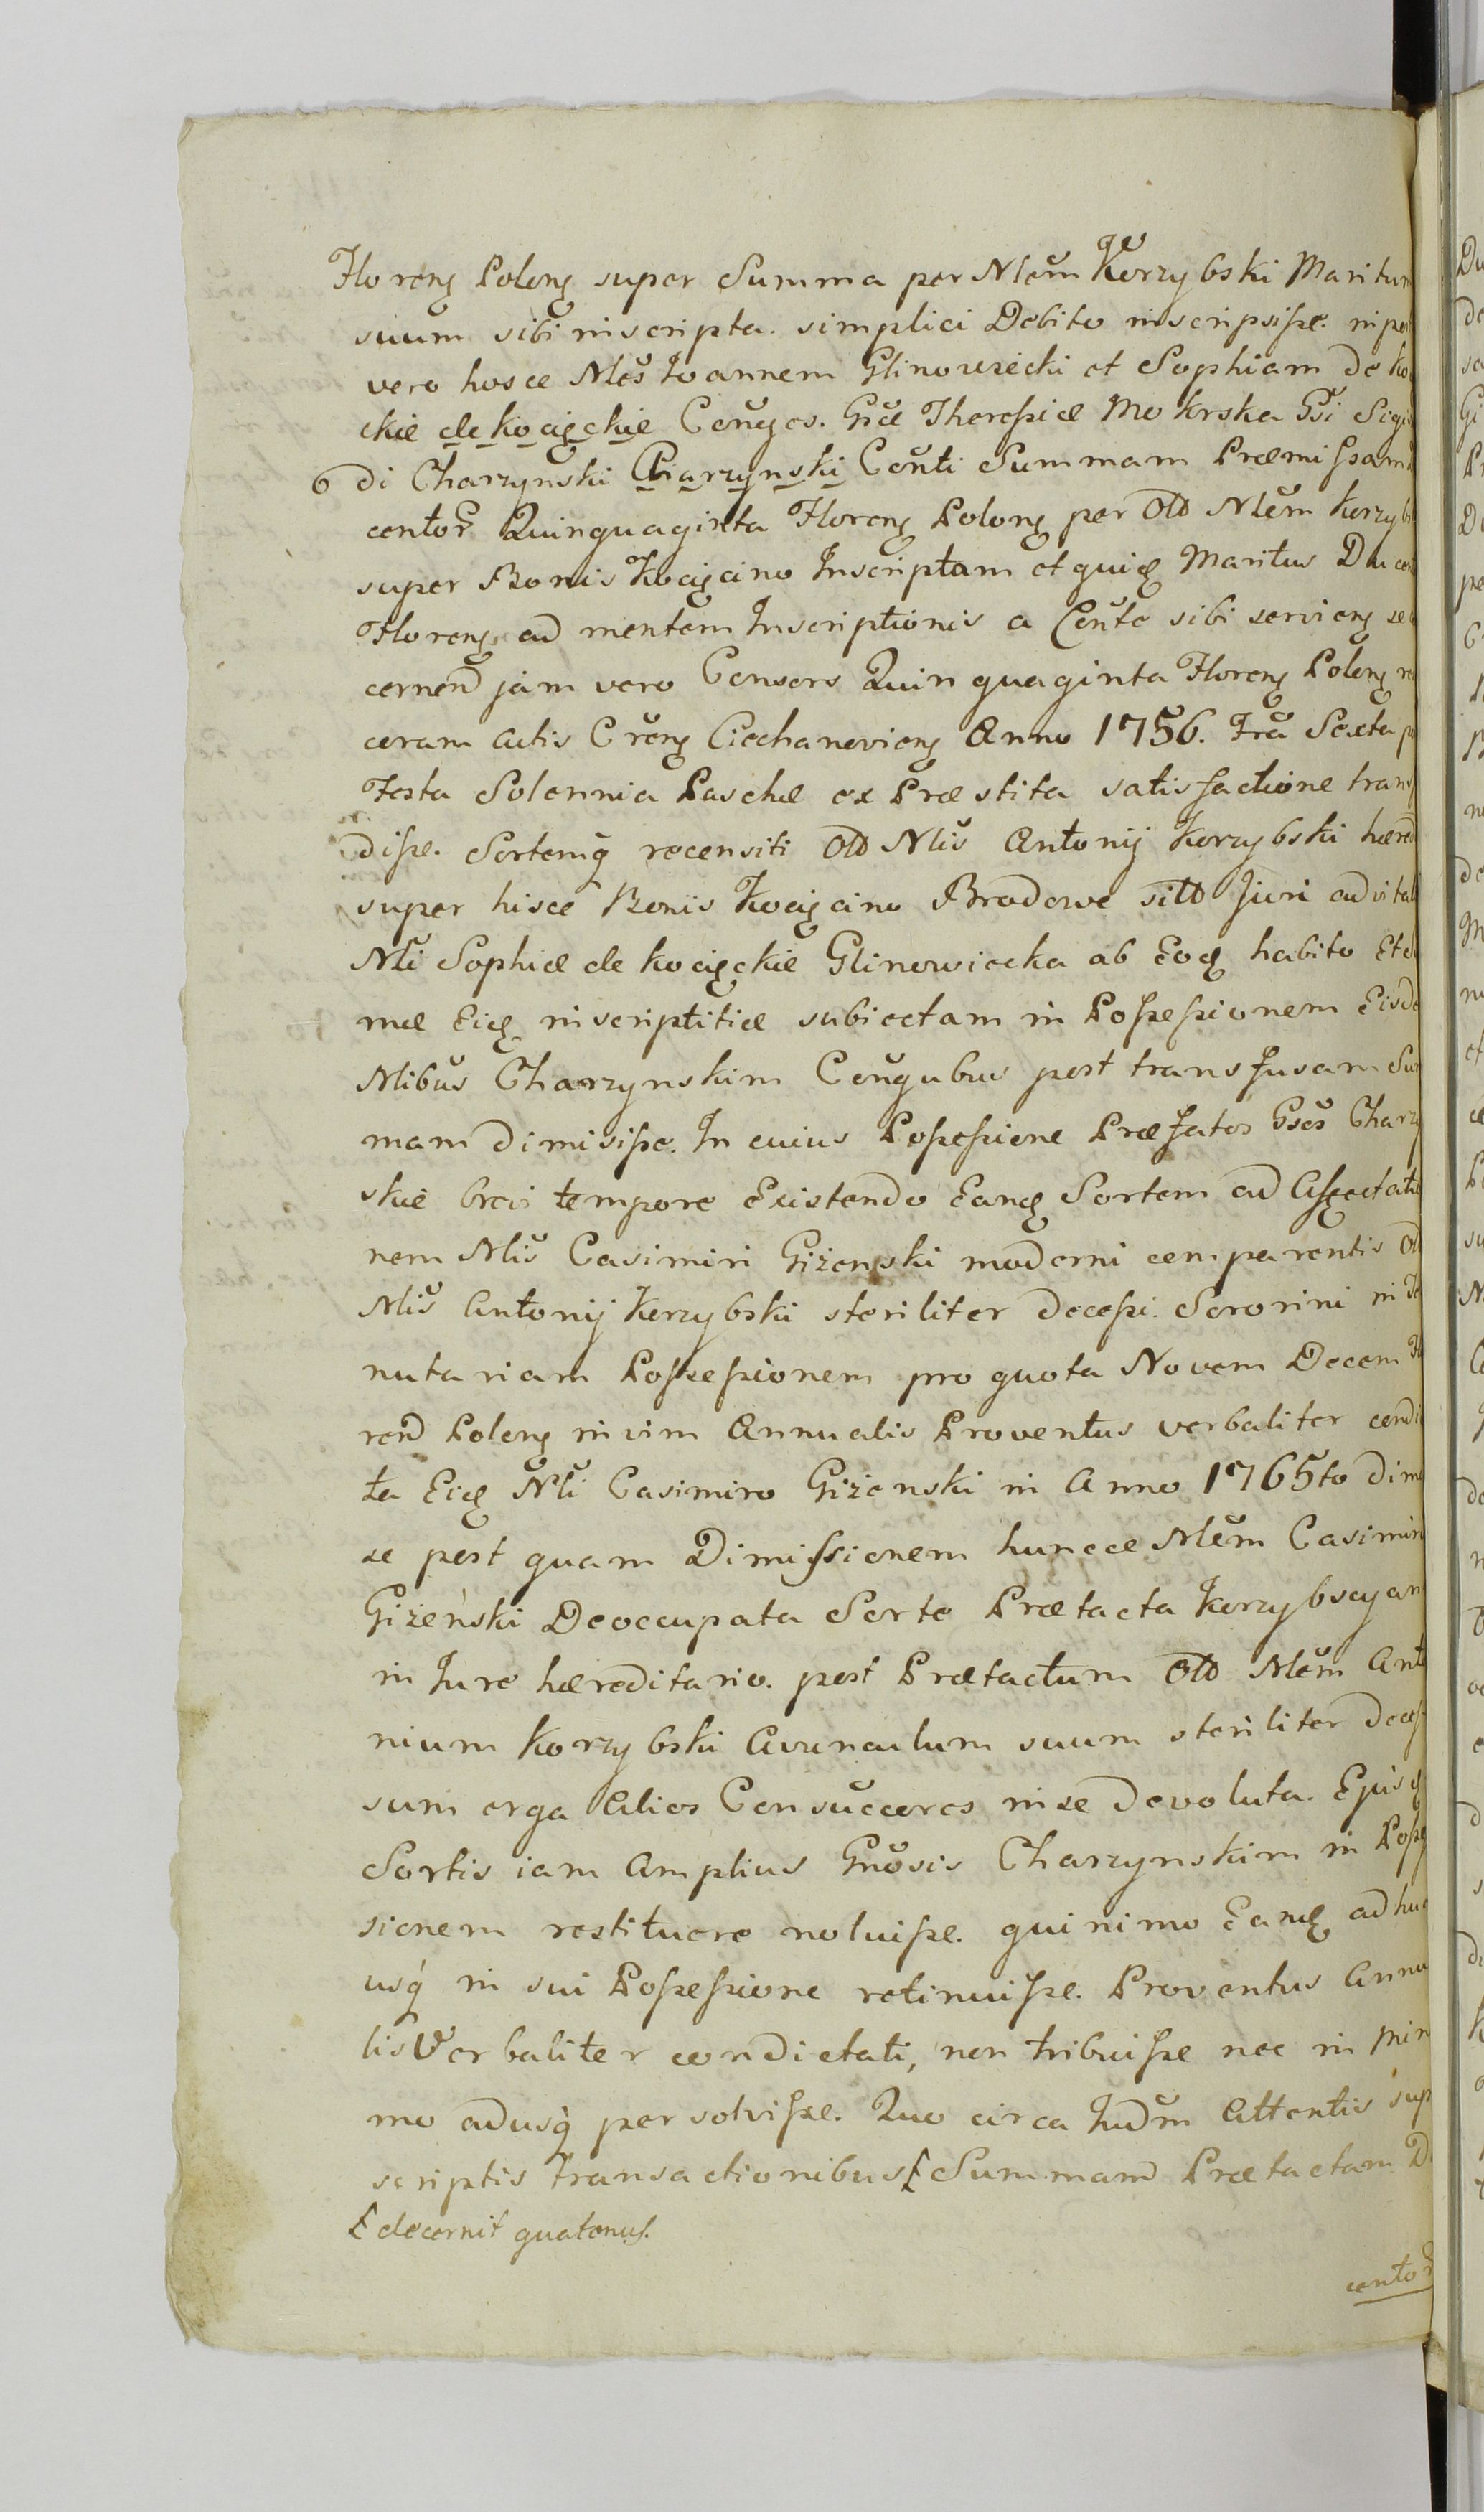 Floreng Polong super Summa per Nlem̃ Korzybski Maritum
suum sibi inscripta. simplici Debito inscripsisse. in
vero hosce Nles̃ Joannem Glinowiecki et Sophiam de
ckie de Kocięckie Conges. Gsæ Theresiæ Mokrska Gsi Sigis
di Charzynski Charzynski Conti Summam Præmissam
centor Quinquaginta Floreng Polong per Old Nlem̃ Korzyb
super Bonis Kocięcino Inscriptam et quiq Maritus Ducen
Floreng ad mentem Inscriptionis a Conte sibi servieng
cernend jam vero Consors Quinquaginta Floreng Polong
coram actis Creng Ciechanovieng Anno 1756. Fra Sexta
Festa Solennia Paschæ ex Præstita satisfactione trans
disse. Sortemq́ recensiti Old Nlis̃ Antonij Korzybski hæred
super hisce Bonis Kocięcino Brodowo sitd Juri advital
Nli Sophiæ de Kocięckie Glinowiecka ab Eoq habito Et
mæ Eiq inscriptitiæ subiectam in Possessionem Eisde
Nlibus Charzynskim Congubus post transfusam Sum
mam dimisisse. In cuius Possessione Præfatos Gsos Charzy
skie brevi tempore Existendo Eanq Sortem ad Affectatio
nem Nlis̃ Casimiri Giżenski moderni comparentis Old
Nlis̃ Antonij Korzybski steriliter decessi. Sororini in Te
nutariam Possessionem pro quota Novem Decem
rend Poleng in vim Annualis Proventus verbaliter condi
ta Eiq Nli Casimiro Giżenski in Anno 1765to
se post quam Dimissionem huncce Nlem̃ Casimirum
Giżeński Deoccupata Sorte Prætacta Korzybscyan
in Jure hæreditario. post Prætactum Old Nlem̃ Anto
nium Korzybski Avunculum suum steriliter deces
sum erga Alios Consuccores in se devoluta. Ejusq
Sortis iam Amplius Gnosis Charzynskim in Posse
sionem restituere noluisse. quinimo Eamq adhuc
usq́ in sui Possessione retinuisse. Proventus Annua
lis Verbaliter condictati, non tribuisse nec in min
mo adusq́ persolvisse. Quo circa Judm̃ Attentis sup
scriptis transactionibus Summam Prætactam
decernit quatenus.
centor